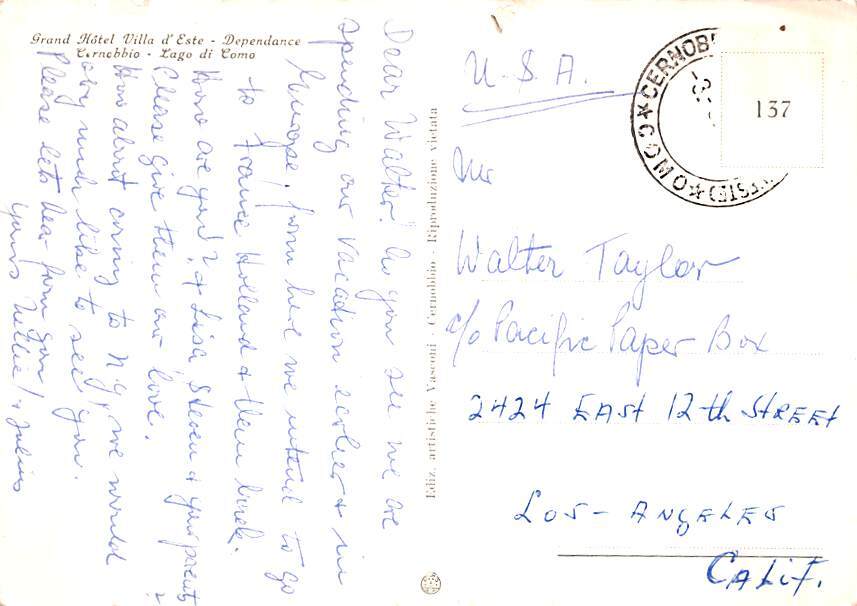 Grand Hôtel Villa d'Este - Dependance
Cernobbio - Lago di Como
Dear Walter! As you see we are
spending our vacation earlier & in
Europe! from here we intend to go
to France Holland & then back.
How are you? & Lisa, Steven & your parents?
Please give them our love.
How about coming to N.Y, we would
very much like to see you.
Please lets hear from you
yours Nellie! & Julius
Ediz. artistiche Vasconi - Cernobbio - Riproduzione vietata
U.S.A.
Mr
Walter Taylor
c/o Pacific Paper Box
2424 EAST 12th STREET
LOS-ANGELES
CALIF.
COMO * CERNOB
137